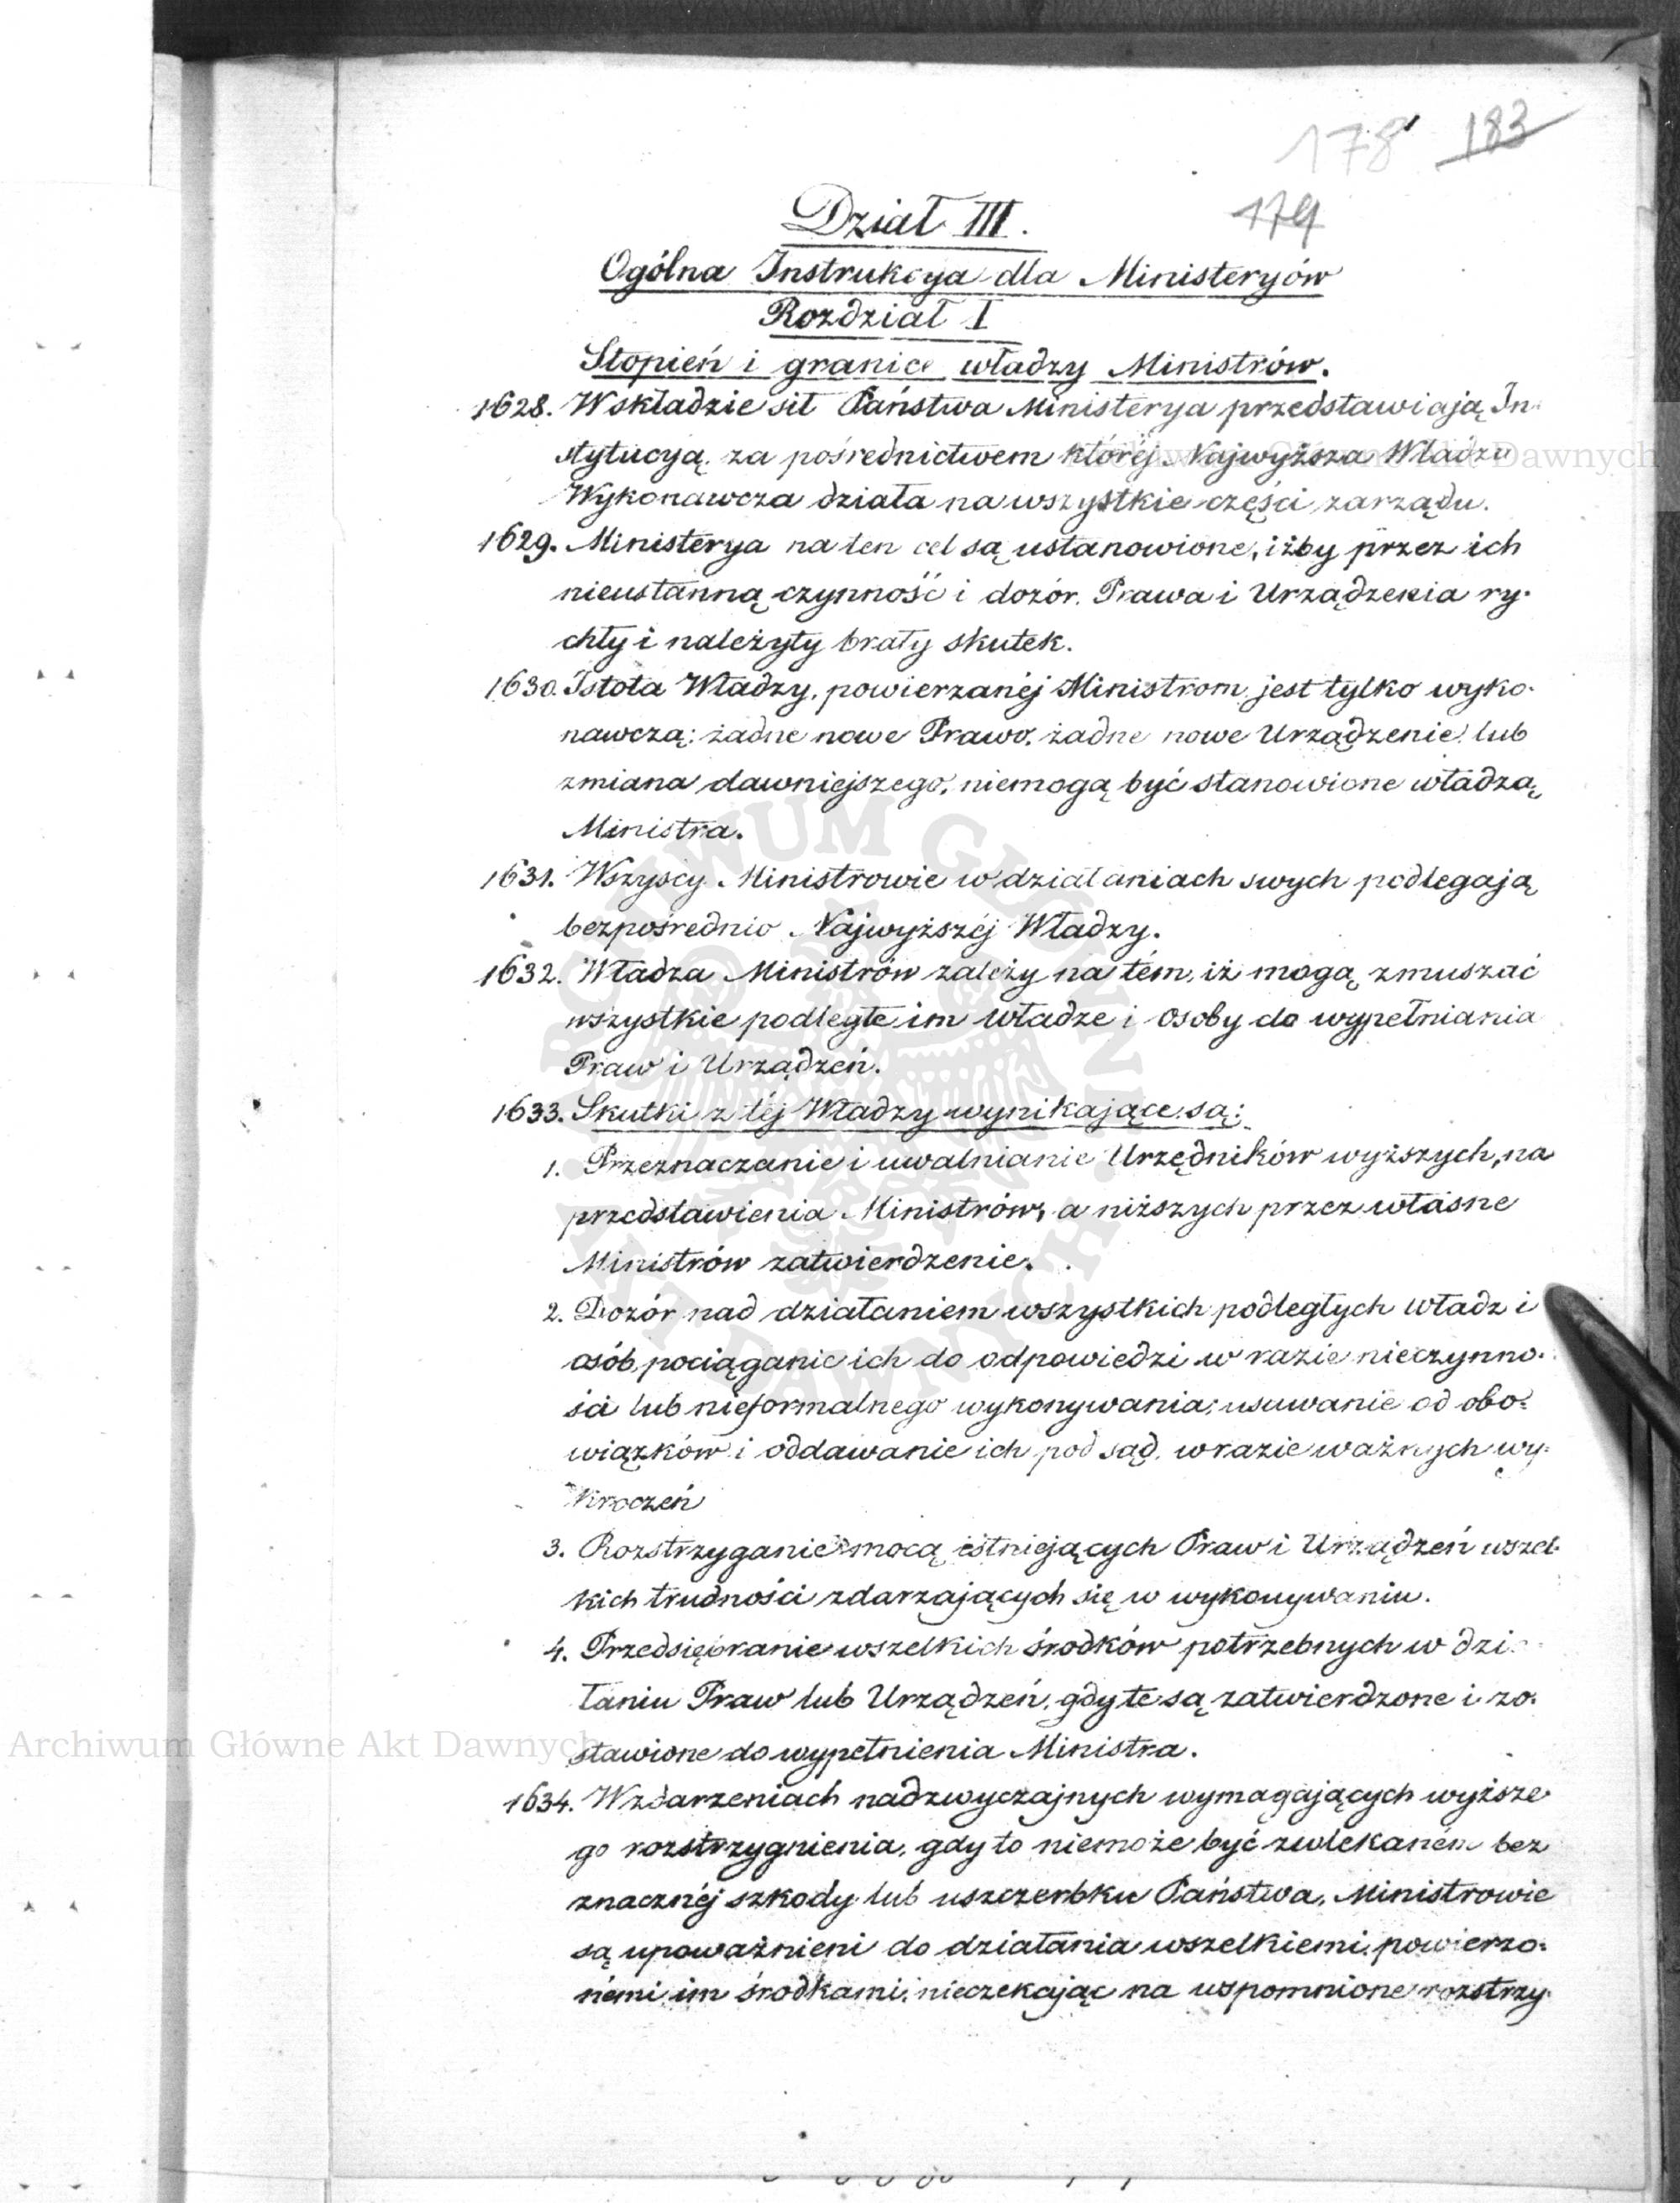 178 183
179
Dział III.
Ogólna Instrukcya dla Ministeryów
Rozdział I
Stopień i granice władzy Ministrów.
1628. W składzie sił Państwa Ministerya przedstawiają In-
stytucyą, za pośrednictwem któréj Najwyższa Władza
Wykonawcza działa na wszystkie części zarządu.
1629. Ministerya na ten cel są ustanowione, iżby przez ich
nieustanną czynność i dozór, Prawa i Urządzenia ry-
chły i należyty brały skutek.
1630. Istota Władzy, powierzanéj Ministrom, jest tylko wyko-
nawczą; żadne nowe Prawo, żadne nowe Urządzenie, lub
zmiana dawniejszego, niemogą być stanowione władzą
Ministra.
1631. Wszyscy Ministrowie w działaniach swych podlegają
bezpośrednio Najwyższéj Władzy.
1632. Władza Ministrów zależy na tém, iż mogą zmuszać
wszystkie podległe im władze i osoby do wypełniania
Praw i Urządzeń.
1633. Skutki z téj Władzy wynikające są:
1. Przeznaczanie i uwalnianie Urzędników wyższych, na
przedstawienia Ministrów, a niższych przez własne
Ministrów zatwierdzenie.
2. Dozór nad działaniem wszystkich podległych władz i
osób, pociąganie ich do odpowiedzi w razie nieczynno-
ści lub nieformalnego wykonywania; usuwanie od obo-
wiązków i oddawanie ich pod sąd, w razie ważnych wy-
kroczeń
3. Rozstrzyganie mocą istniejących Praw i Urządzeń wszel-
kich trudności zdarzających się w wykonywaniu.
4. Przedsiębranie wszelkich środków potrzebnych w dzia-
łaniu Praw lub Urządzeń, gdy te są zatwierdzone i zo-
stawione do wypełnienia Ministra.
1634. W zdarzeniach nadzwyczajnych wymagających wyższe-
go rozstrzygnienia, gdy to niemoże być zwlekaném bez
znacznéj szkody lub uszczerbku Państwa, Ministrowie
są upoważnieni do działania wszelkiemi, powierzo-
némi im środkami, nieczekając na wspomnione rozstrzy-
Archiwum Główne Akt Dawnych
ARCHIWUM GŁÓWNE AKT DAWNYCH